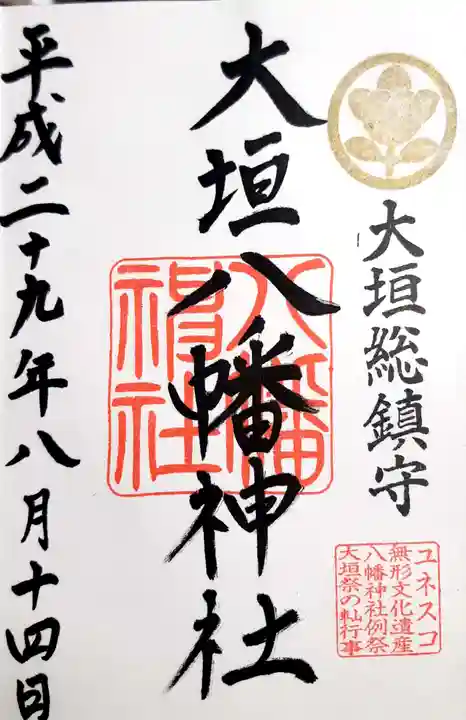 大垣総鎮守
ユネスコ
無形文化遺産
八幡神社例祭
大垣祭の軕行事
大垣八幡神社
八幡
神社
平成二十九年八月十四日